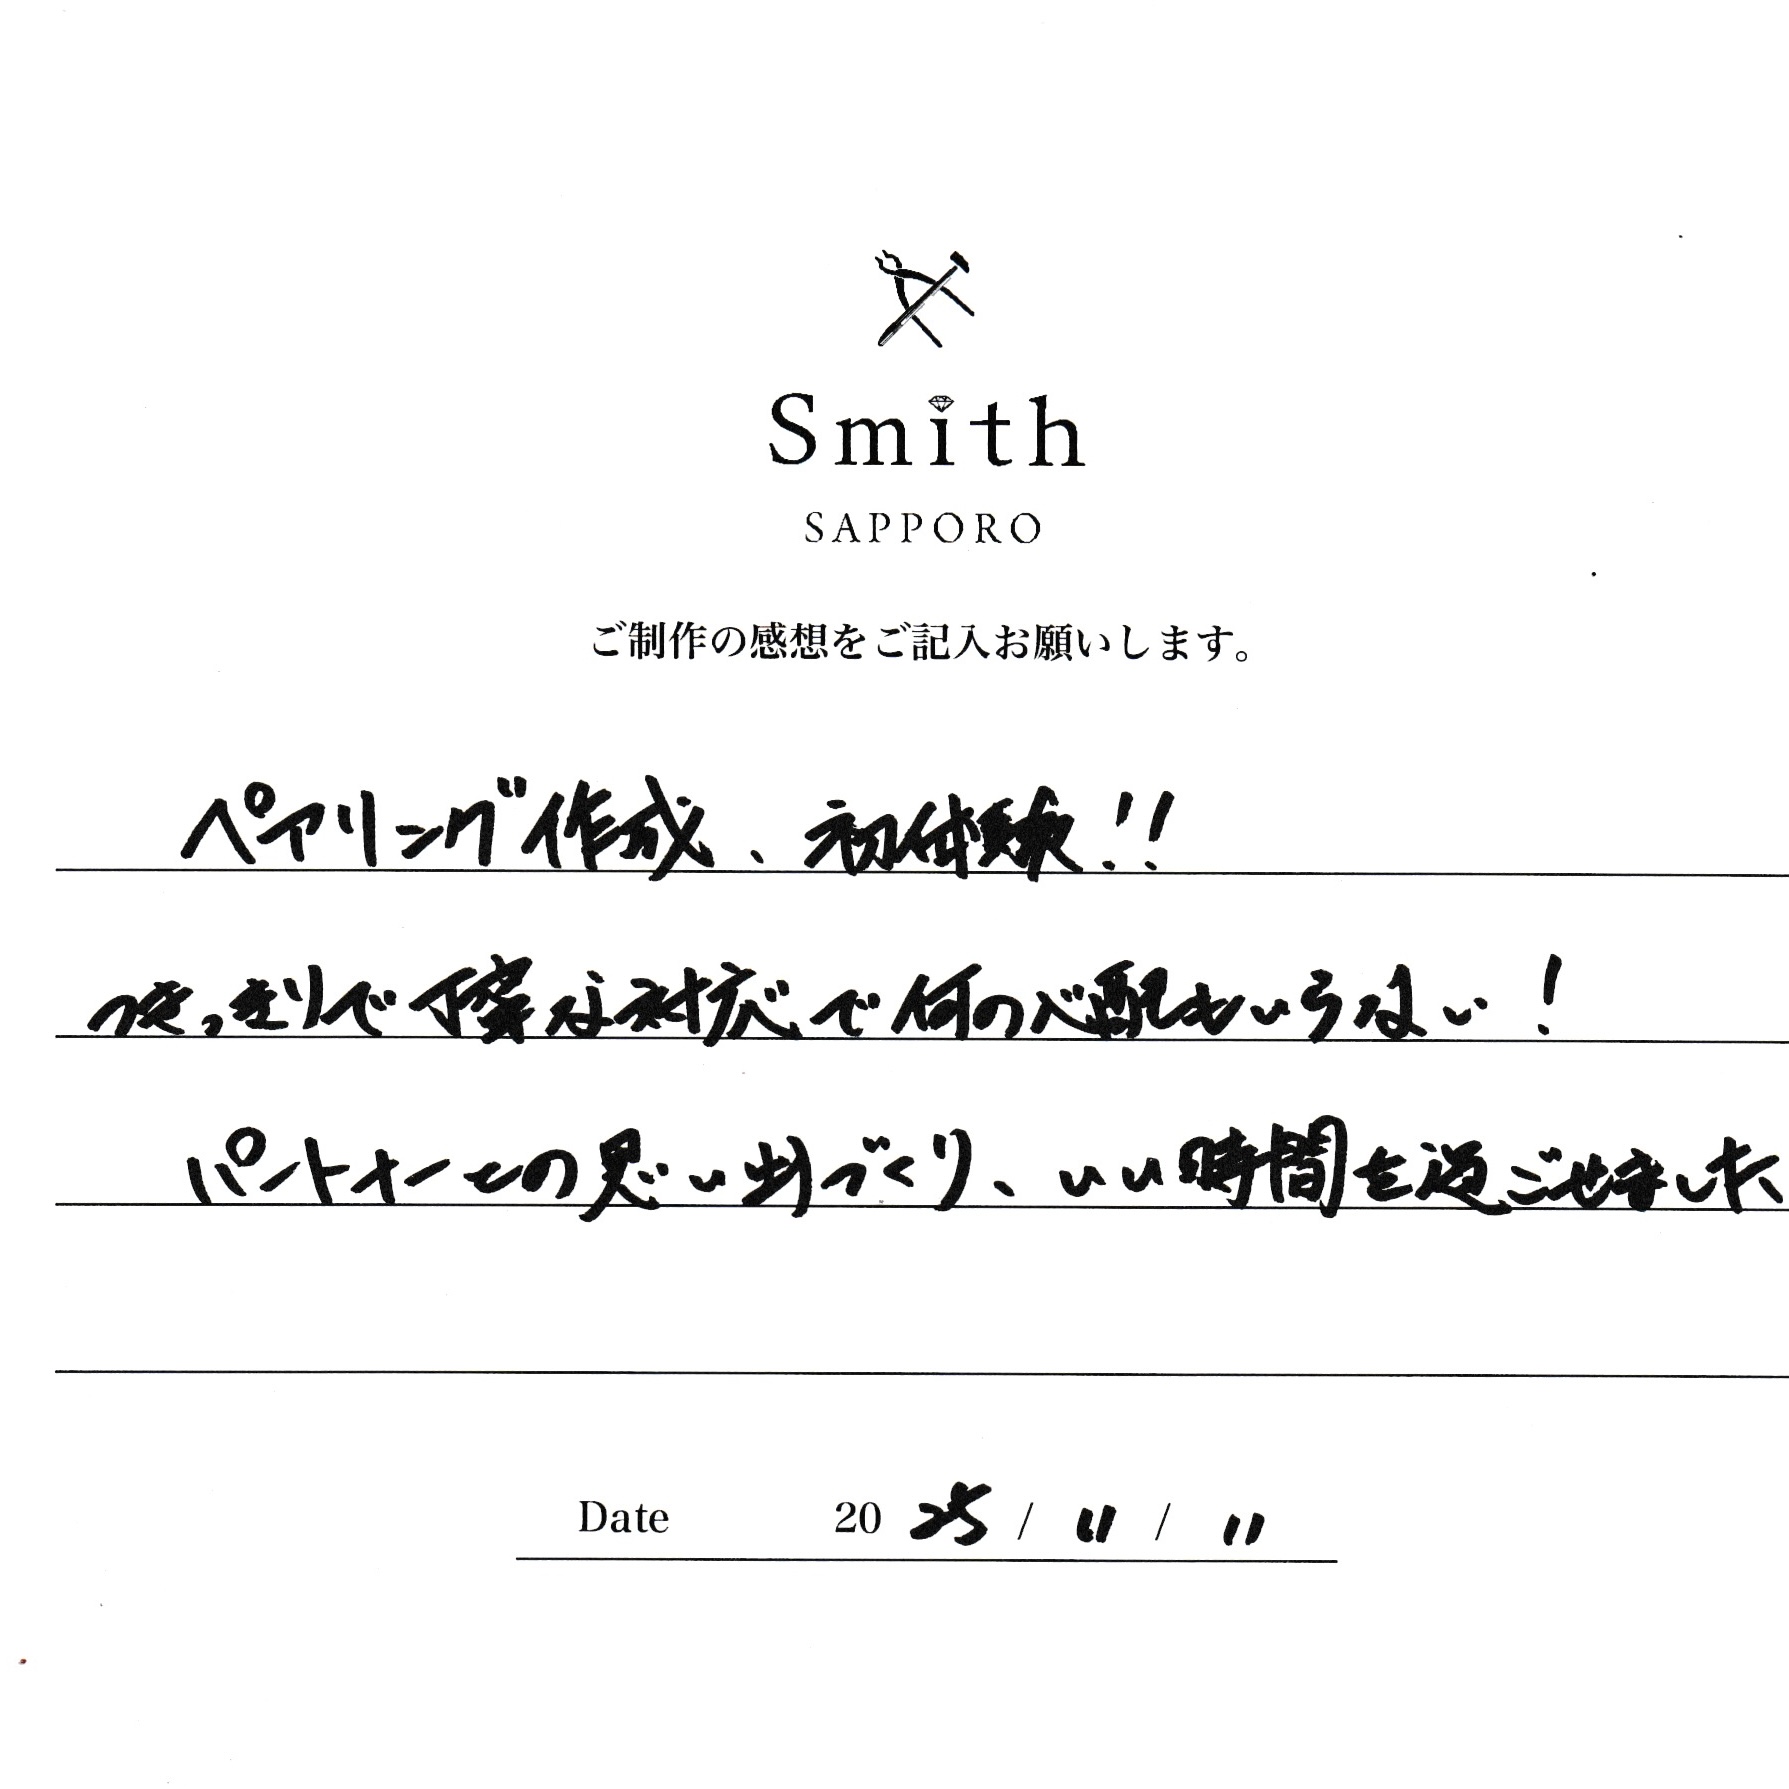 Smith
SAPPORO
ご制作の感想をご記入お願いします。
ペアリング作成、初体験!!
つきっきりで丁寧な対応で何の心配もいらない!
パートナーとの思い出づくり、いい時間を過ごせました
Date 2025 / 11 / 11